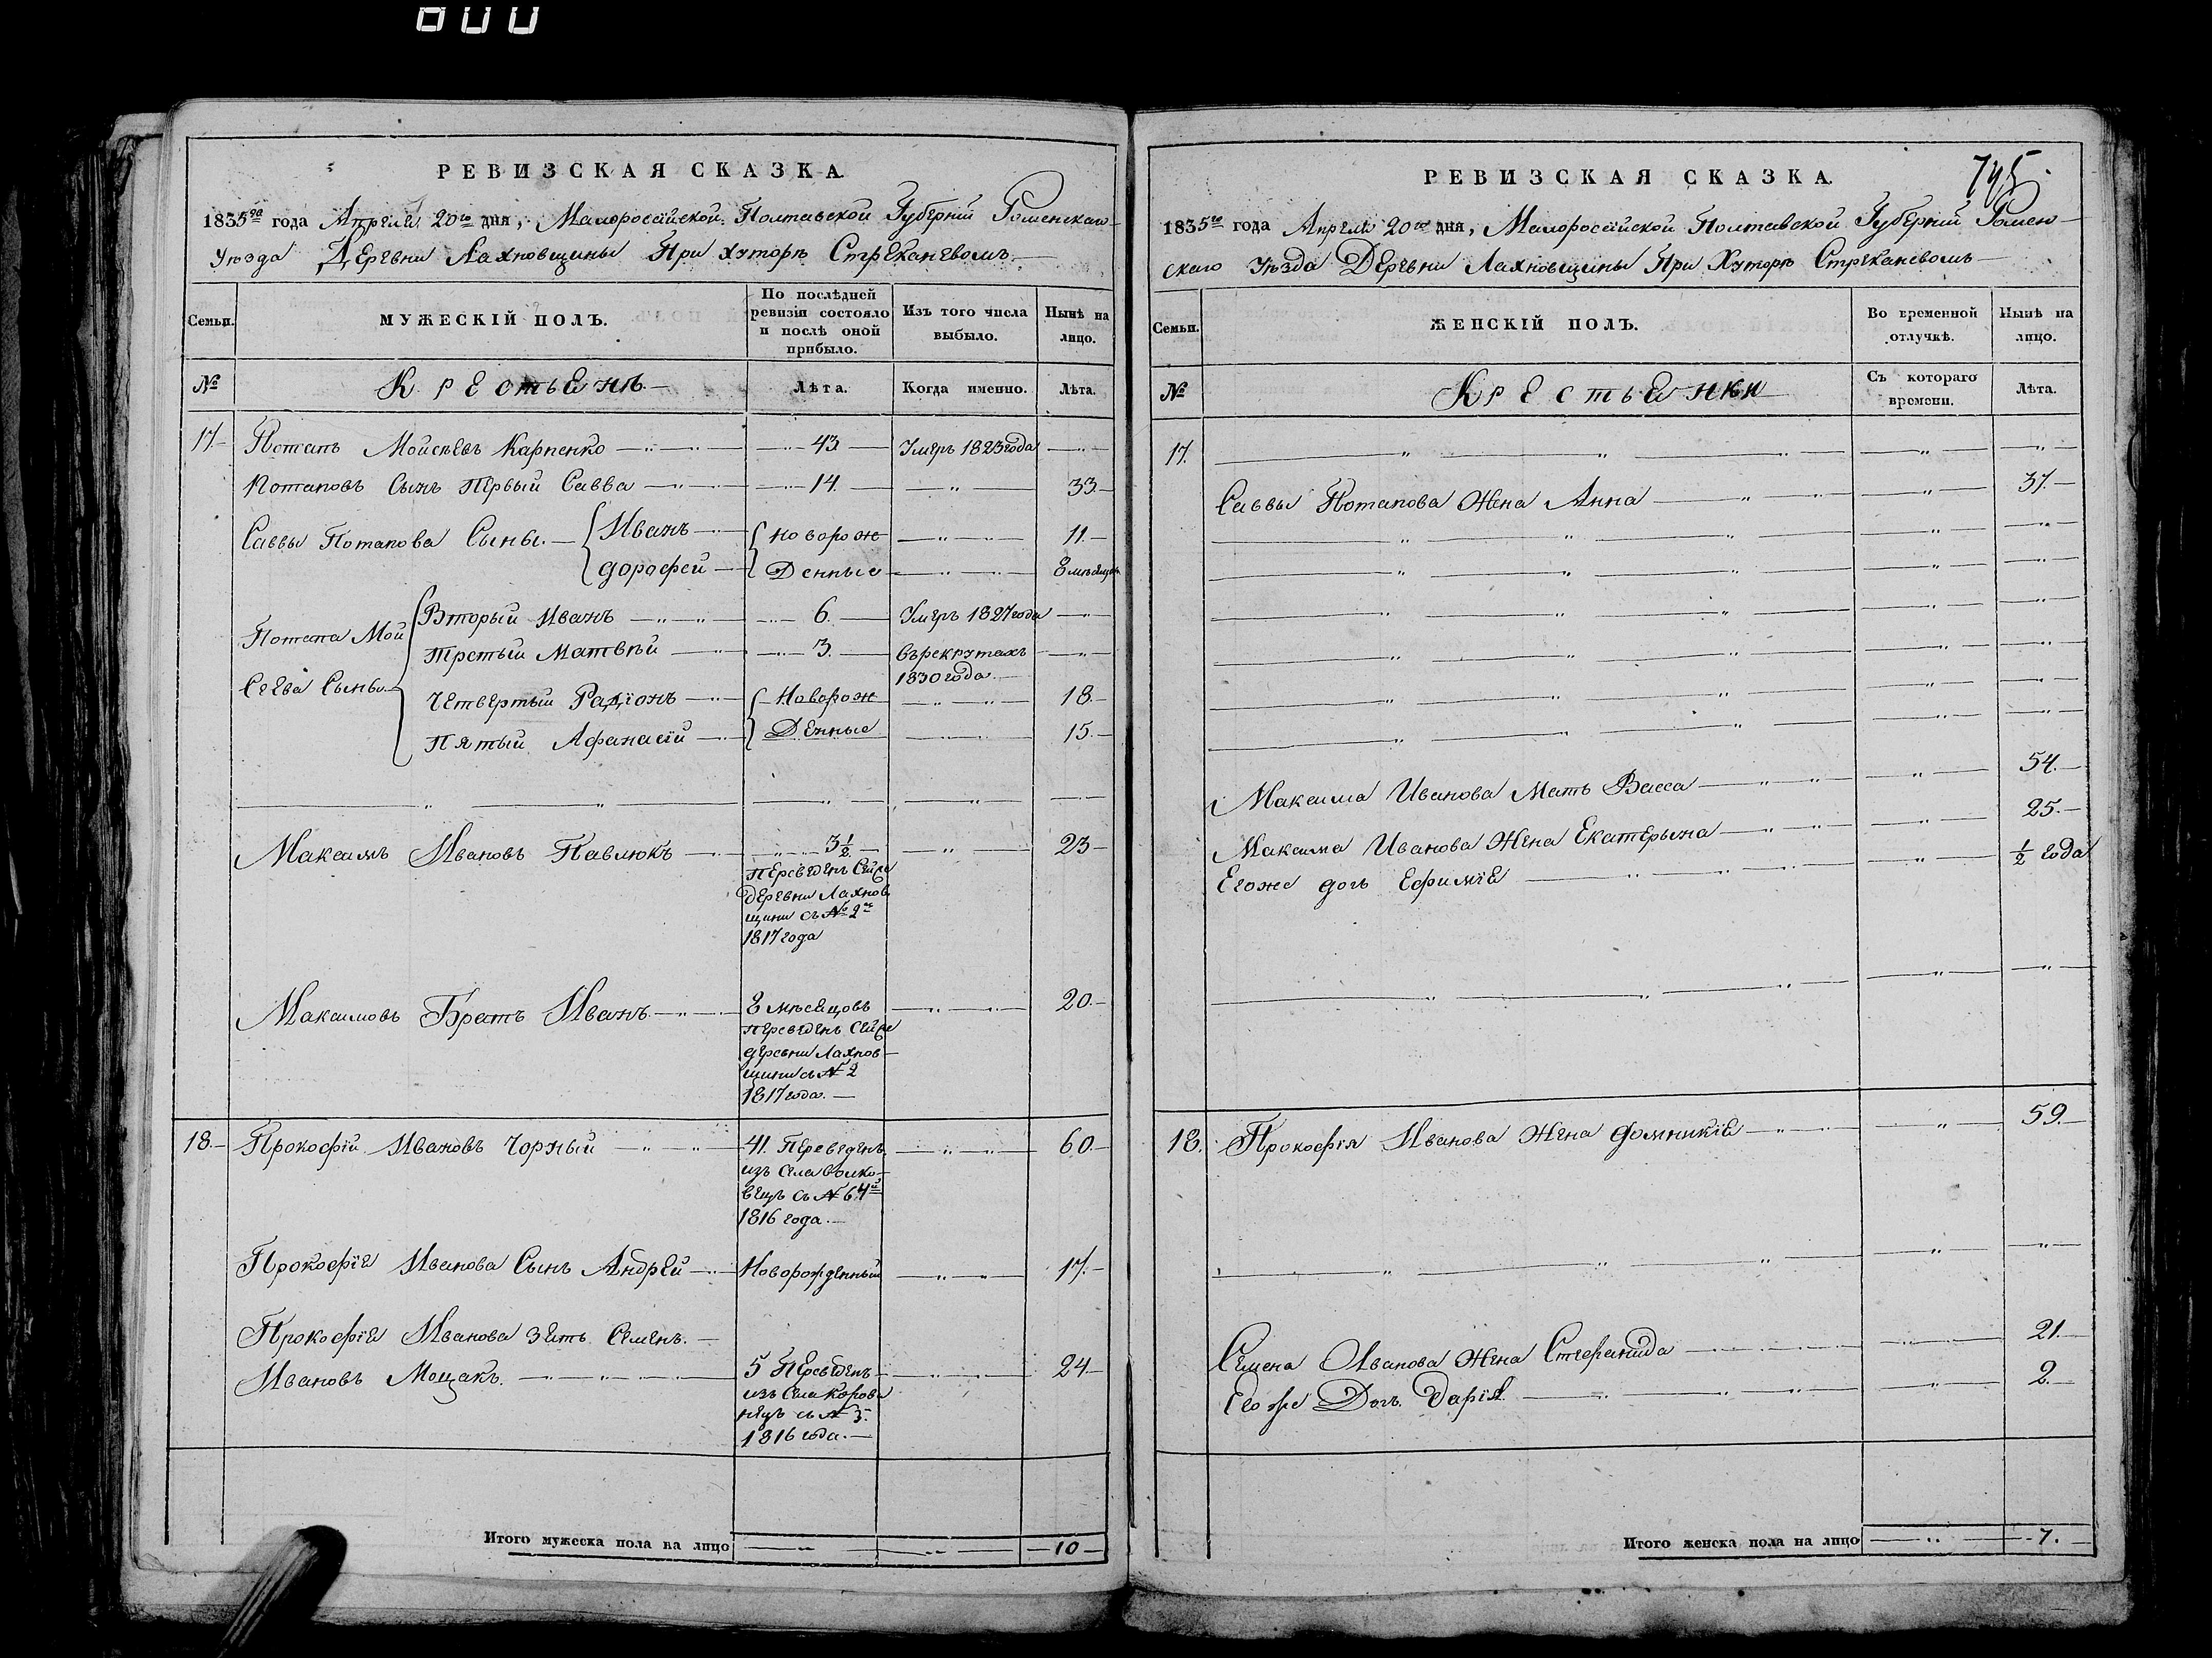 600
РЕВИЗСКАЯ СКАЗКА.
1835го года Апреля 20го дня, Малороссійской Полтавской Губерніи Роменскаго
Уезда Деревни Лахновщины При хуторѣ Стрекачевомъ
Семьи.
МУЖЕСКІЙ ПОЛЪ.
По послѣдней
ревизіи состояло
и послѣ оной
прибыло.
Изъ того числа
выбыло.
Нынѣ на
лицо.
№
Крестьянѣ
Лѣта.
Когда именно.
Лѣта.
17 Потапъ Мойсѣевъ Карпенко 43 Умеръ 1823 года
Потаповъ Сынъ Первый Савва 14. 33
Саввы Потапова Сыны Иванъ новорож 11.
дорофей Денные 8 мѣсяцовъ
Потапа Мой Вторый Иванъ 6. Умеръ 1827 года
Третый Матвѣй 3. Въ рекрутахъ
1830 года.
Сеева Сыны Четвертый Радіонъ Новорож 18.
Пятый Афанасій Денные 15.
Максимъ Ивановъ Павлюкъ 3 1/2 23
Переведенъ Сей же
деревни Лахнов
щини съ № 2го
1817 года
Максимовъ Братъ Иванъ 8 мѣсяцовъ 20.
Переведенъ Сей же
деревни Лахнов
щини съ № 2
1817 года.
18. Прокофій Ивановъ Чорный 41. Переведенъ 60.
изъ Села Волко
вецъ съ № 64й
1816 года.
Прокофія Иванова Сынъ Андрей Новорожденный 17.
Прокофія Иванова зять Семенъ
Ивановъ Мощакъ. 5 Переведенъ 24
изъ Села Корова
нецъ съ № 3.
1816 года.
Итого мужеска пола на лицо 10
745.
РЕВИЗСКАЯ СКАЗКА.
1835го года Апреля 20го дня, Малоросійской Полтавской Губерніи Ромен
скаго Уѣзда Деревни Лахновщины При Хуторѣ Стрекачевомъ
Семьи.
ЖЕНСКІЙ ПОЛЪ.
Во временной
отлучкѣ.
Нынѣ на
лицо.
№
Крестьянки
Съ котораго
времени.
Лѣта.
17.
Саввы Потапова Жена Анна 37.
Максима Иванова Мать Васса 54.
Максима Иванова Жена Екатерына 25.
Егоже дочь Ефимія 1/2 года
18. Прокофія Иванова Жена Домникія 59.
Семена Иванова Жена Стефанида 21.
Егоже Дочь Дарія 2.
Итого женска пола на лицо 7.